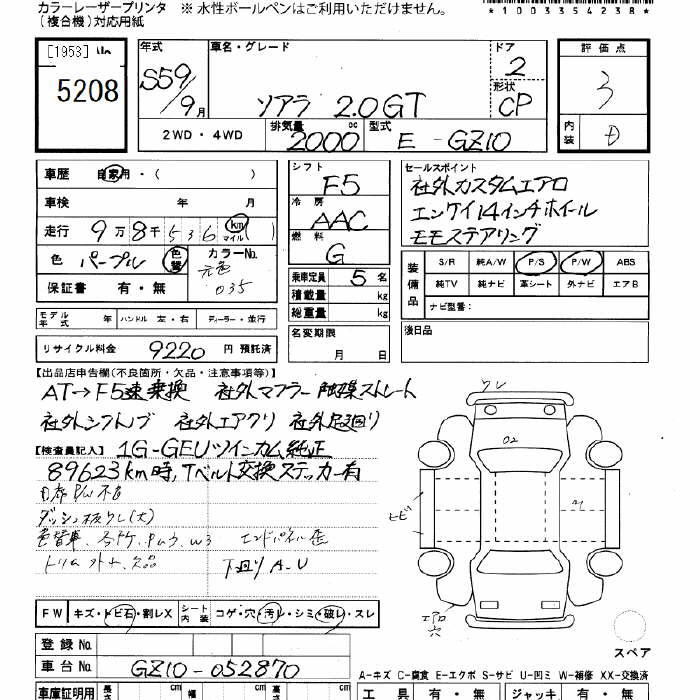 カラーレーザープリンタ ※ 水性ボールペンはご利用いただけません。
(複合機)対応用紙
*100354238*
[1953]
5208
年式 車名・グレード ドア 評価点
S59/9月 ソアラ 2.0GT 2 3
形状 CP
2WD・4WD 排気量 2000 cc 型式 E-GZ10 内装 D
車歴 自家用・( )
車検 年 月
走行 9万8千536 km マイル ( )
色 パープル 色替 カラーNo. 元色 035
保証書 有・無
シフト F5
冷房 AAC
燃料 G
乗車定員 5名
積載量 kg
総重量 kg
名変期限 月 日
セールスポイント
社外カスタムエアロ
エンケイ14インチホイール
モモステアリング
装備品 S/R 純A/W P/S P/W ABS
純TV 純ナビ 革シート 外ナビ エアB
ナビ型番:
後日品
モデル年式 年 ハンドル 左・右 ディーラー・並行
リサイクル料金 9220 円 預託済
【出品店申告欄(不良箇所・欠品・注意事項等)】
AT→F5速乗換 社外マフラー 触媒ストレート
社外シフトノブ 社外エアクリ 社外足廻り
【検査員記入】 1G-GEUツインカム純正
89623km時,Tベルト交換ステッカー有
P/W不良
ダッシュ板ワレ(大)
色替車、 W3 エンドパネル歪
欠品 下廻りA-U
ワレ
02
ヒビ
エアロ穴
スペア
FW キズ・トビ石・割レX シート内装 コゲ・穴・汚レ・シミ・破レ・スレ
登録No.
車台No. GZ10-052870
A-キズ C-腐食 E-エクボ S-サビ U-凹ミ W-補修 XX-交換済
車庫証明用 長さ cm 幅 cm 高さ cm 工具 有・無 ジャッキ 有・無